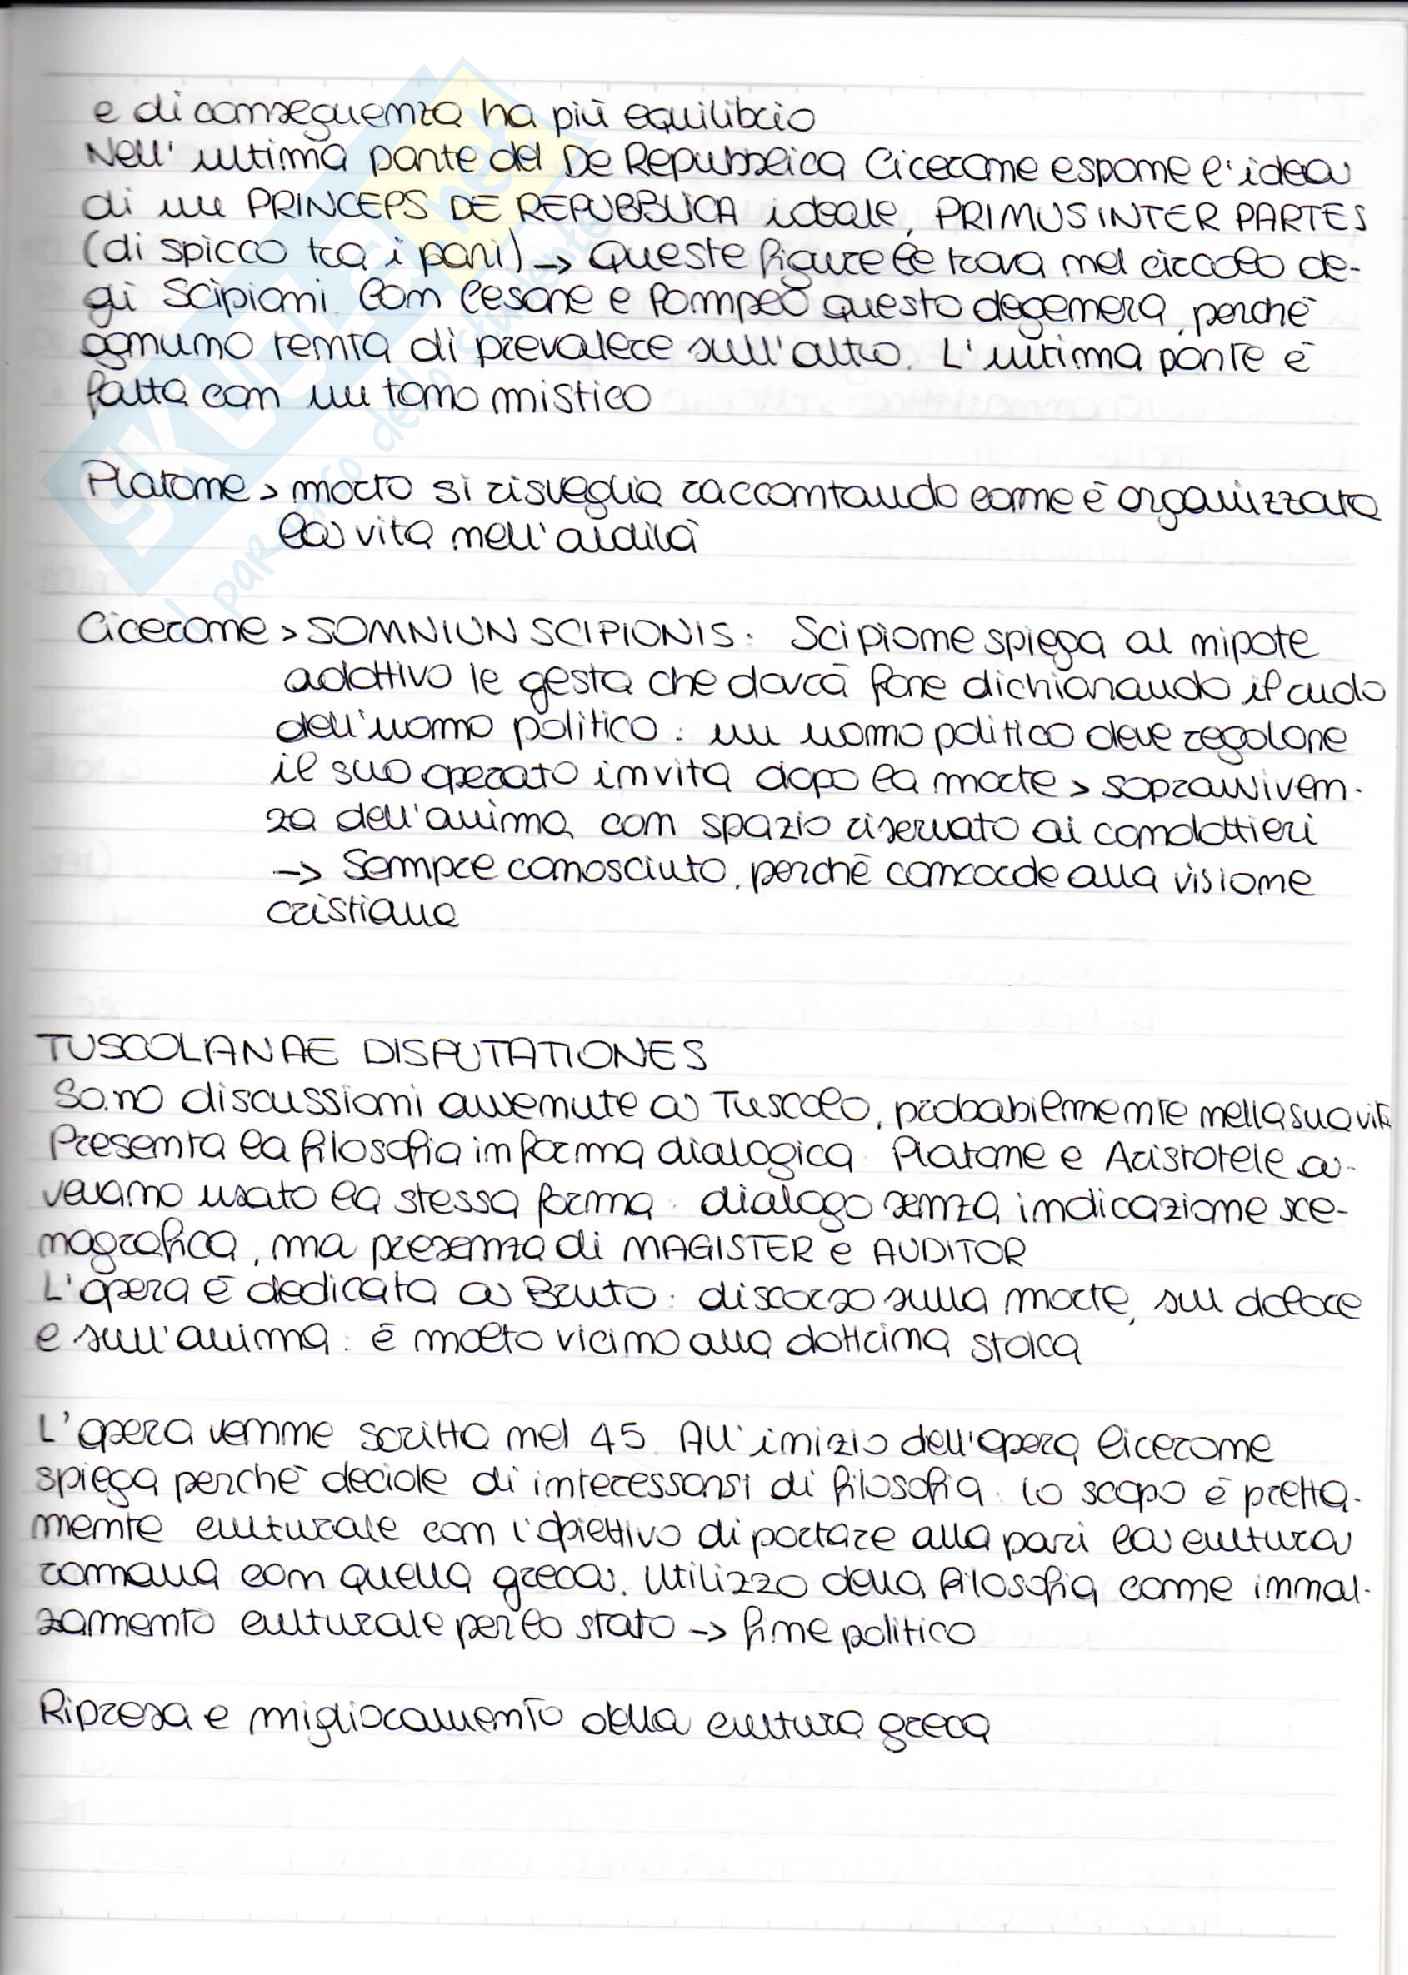 e di conseguenza ha più equilibrio
Nell'ultima parte del De Repubblica Cicerone espone l'idea
di un PRINCEPS DE REPUBBLICA ideale, PRIMUS INTER PARTES
(di spicco tra i pari) -> Queste figure le trova nel circolo de-
gi Scipioni. Com Cesare e Pompeo questo degenera, perchè
ognuno tenta di prevalere sull'altro. L'ultima parte è
fatta con un tono mistico
Platone > morto si risveglia raccontando come è organizzata
la vita nell'aldilà
Cicerone > SOMNIUN SCIPIONIS: Scipione spiega al nipote
adottivo le gesta che dovrà fare dichiarando il
dell'uomo politico: un uomo politico deve regolare
il suo operato in vita dopo la morte > sopravviven-
za dell'anima con spazio riservato ai condottieri
-> Sempre conosciuto, perchè concorde alla visione
cristiana
TUSCOLANAE DISPUTATIONES
Sono discussioni avvenute a Tuscolo, probabilmente nella sua
Presenta la filosofia in forma dialogica. Platone e Aristotele a-
vevano usato la stessa forma: dialogo senza indicazione sce-
nografica, ma presenza di MAGISTER e AUDITOR
L'opera è dedicata a Bruto: discorso sulla morte, sul dolore
e sull'anima: è molto vicino alla dottrina stoica
L'opera venne scritta nel 45. All'inizio dell'opera Cicerone
spiega perchè decide di interessarsi di filosofia: lo scopo è pretta-
mente culturale con l'obiettivo di portare alla pari la cultura
romana con quella greca. Utilizzo della filosofia come innal-
zamento culturale per lo stato -> fine politico
Ripresa e miglioramento della cultura greca
SKUOLA.net
il paradiso dello studente